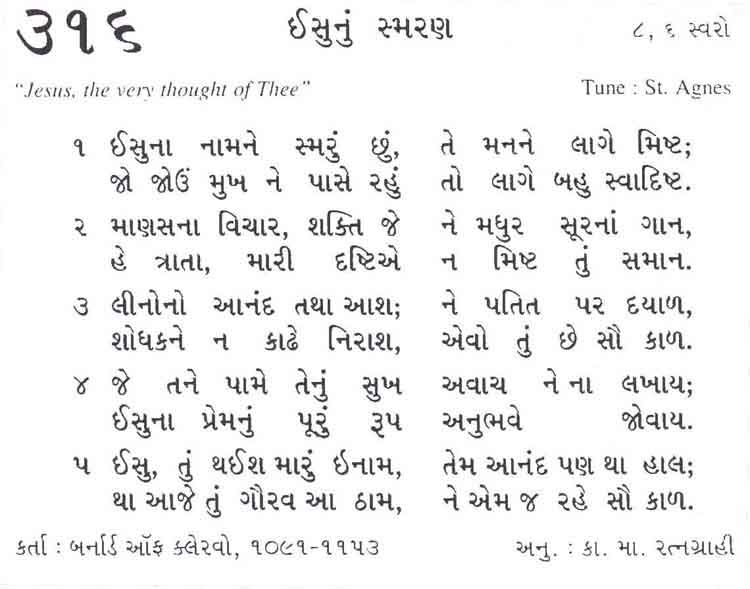 ૩૧૬ ઈસુનું સ્મરણ ૮, ૬ સ્વરો
“Jesus, the very thought of Thee” Tune : St. Agnes
૧ ઈસુના નામને સ્મરું છું, તે મનને લાગે મિષ્ટ;
જો જોઉં મુખ ને પાસે રહું તો લાગે બહુ સ્વાદિષ્ટ.
૨ માણસના વિચાર, શક્તિ જે ને મધુર સૂરનાં ગાન,
હે ત્રાતા, મારી દષ્ટિએ ન મિષ્ટ તું સમાન.
૩ લીનોનો આનંદ તથા આશ; ને પતિત પર દયાળ,
શોધકને ન કાઢે નિરાશ, એવો તું છે સૌ કાળ.
૪ જે તને પામે તેનું સુખ અવાચ ને ના લખાય;
ઈસુના પ્રેમનું પૂરું રૂપ અનુભવે જોવાય.
૫ ઈસુ, તું થઈશ મારું ઇનામ, તેમ આનંદ પણ થા હાલ;
થા આજે તું ગૌરવ આ ઠામ, ને એમ જ રહે સૌ કાળ.
કર્તા : બર્નાર્ડ ઑફ ક્લેરવો, ૧૦૯૧-૧૧૫૩ અનુ. : કા. મા. રત્નગ્રાહી